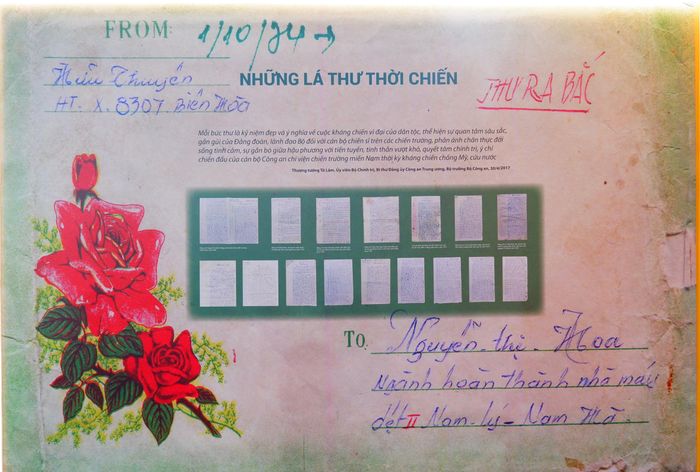 FROM:
1/10/74 →
Hữu Thuyên
HT. X. 8307 Biên Hòa
NHỮNG LÁ THƯ THỜI CHIẾN
THƯ RA BẮC
Mỗi bức thư là kỷ niệm đẹp và ý nghĩa về cuộc kháng chiến vĩ đại của dân tộc, thể hiện sự quan tâm sâu sắc,
gần gũi của Đảng đoàn, lãnh đạo Bộ đối với cán bộ chiến sĩ trên các chiến trường, phản ánh chân thực đời
sống tình cảm, sự gắn bó giữa hậu phương với tiền tuyến, tinh thần vượt khó, quyết tâm chính trị, ý chí
chiến đấu của cán bộ Công an chi viện chiến trường miền Nam thời kỳ kháng chiến chống Mỹ, cứu nước
Thượng tướng Tô Lâm, Ủy viên Bộ Chính trị, Bí thư Đảng ủy Công an Trung ương, Bộ trưởng Bộ Công an, 30/4/2017
TO:
Nguyễn thị Hoa
Ngành hoàn thành nhà máy
dệt II Nam lý - Nam Hà.